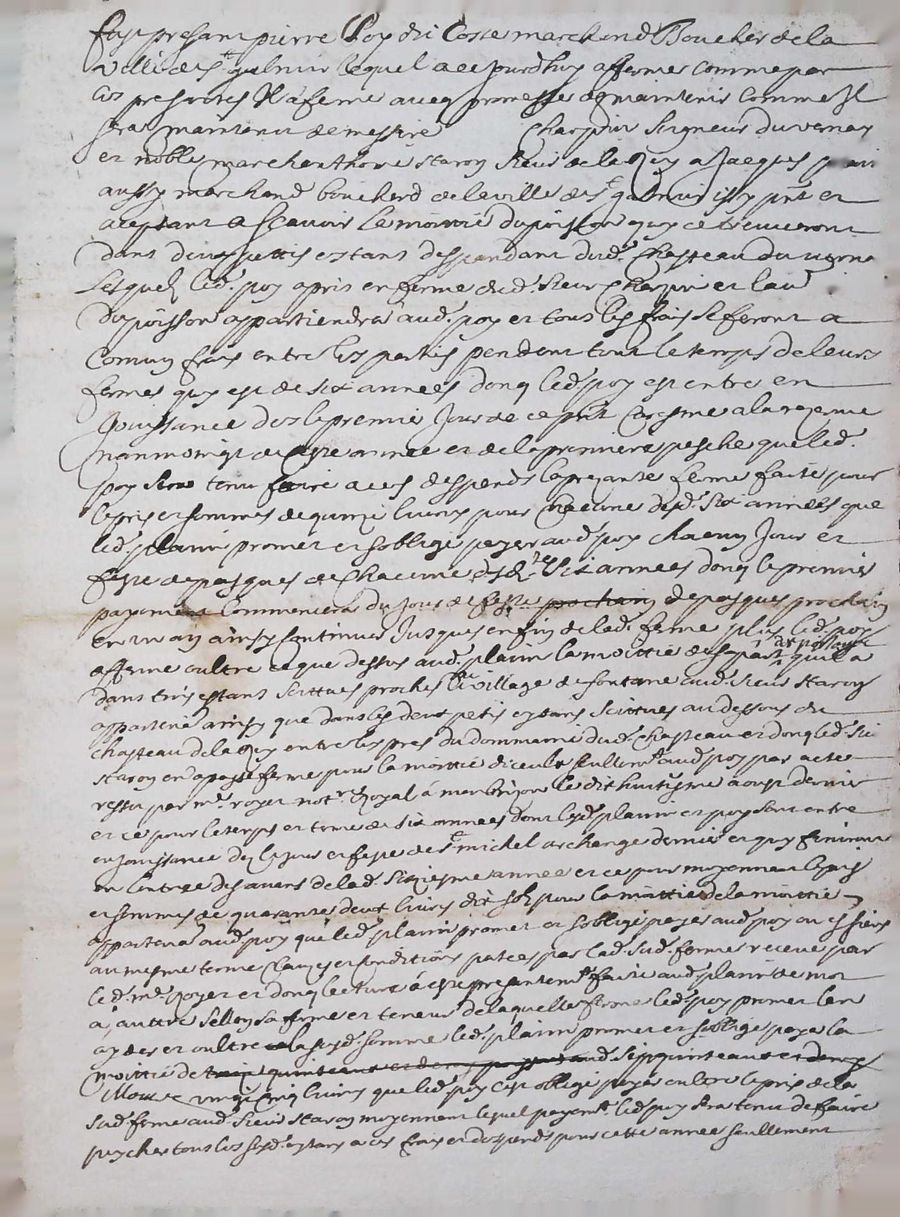 fust presant pierre Poy dit Coste marchand Boucher de la
ville de St galmier lequel a ce jourdhuy afferme comme par
ces presantes Il afferme avecq promesse de maintenir comme Il
sera maintenu de messire Charpin Seigneur du vernay
et noble marchanthoine staron sieur de la Rey a Jacques plaini
aussy marchand boucherd de la ville de St galmier issy pnt et
aceptant a scavoir la moitié du poisson quy ce treuveront
dans deux petis estant despandant dud. Chasteau du verna
Lesquels led. poy a pris en ferme dud. sieur charpin et lau
du poisson appartiendra aud. poy et tous les frais se feront a
Comun frais entre les parties pendent tout le temps de leurs
fermes quy est de six années donq led. poy est entre en
Jouissance des le premier Jour de ce pnt Caresme a la reserve
nanmoingt de ceste année et de la premiere pesche que led.
poy sera tenu faire a ces despends la presante ferme faite pour
le pris et somme de quinze livres pour chacune desd. six années que
led. plaini promet et soblige payer aud. poy chacun Jour et
feste de pasques de Chacune desd. six annees donq le premier
payement Commencera du jour de feste de pasques prochain
en un an ainsy continuer Jusques en fin de lad. ferme plus led. poy
afferme oultre ce que dessus aud. plaini la moittié de sa part du poisson quil a
dans trois estans scittues proches le village de fontane aud. sieur staron
appartenant ainsy que dans les deux petis estans scittues au dessous du
chasteau de la Rey entre les pres du dommaine dud. Chasteau et donq led. sr
staron en a passe ferme pour la moittie diceulx seullemt aud. poy par acte
receu par me royer notre Royal a montbrison le dit huitisme aoust dernier
et ce pour le temps et terme de six années dont lesd. plaini et poy sont entre
en jouissance des le jour et feste de St michel archange dernier et quy finiront
en lentree des avens de lad. sixiesme année et ce pour moyennant le pris
et somme de quarante deux livres dix solz pour la moittie de la moittie
appartenant aud. poy que led. plaini promet et soblige payer aud. poy
au mesme terme Clauses et conditions passees par lad. susd. ferme receue par
led. me Royer et donq lecture a esté presentemt faite aud. plaini de mot
a auttre sellon sa forme et teneur de laquelle ferme led. poy promet len
ayder et oultre la susd. somme led. plaini promet et soblige paye la
moittié de
vingt cinq livres que led. poy cest oblige payer oultre le pris de la
susd. ferme aud. sieur staron moyennant lequel payemt led. poy sera tenu de faire
pescher tous les susd. estans a ces frais et despends pour cette annee seullement